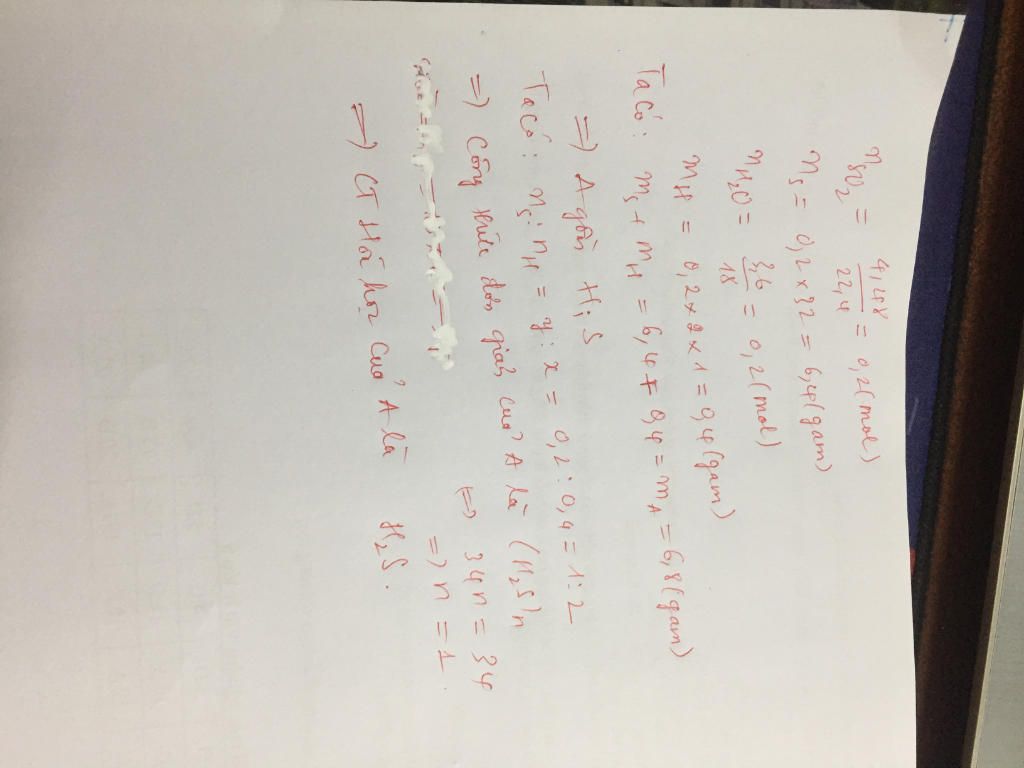 nSO2 = 4,48/22,4 = 0,2(mol)
nS = 0,2 x 32 = 6,4(gam)
nH2O = 3,6/18 = 0,2(mol)
mH = 0,2 x 2 x 1 = 0,4(gam)
Ta có: mS + mH = 6,4 + 0,4 = mA = 6,8(gam)
=) A gồm H; S
Ta có: nS : nH = y : x = 0,2 : 0,4 = 1 : 2
=) Công thức đơn giản của A là (H2S)n
(=) 34n = 34
=) n = 1
=) CT Hóa học của A là H2S.